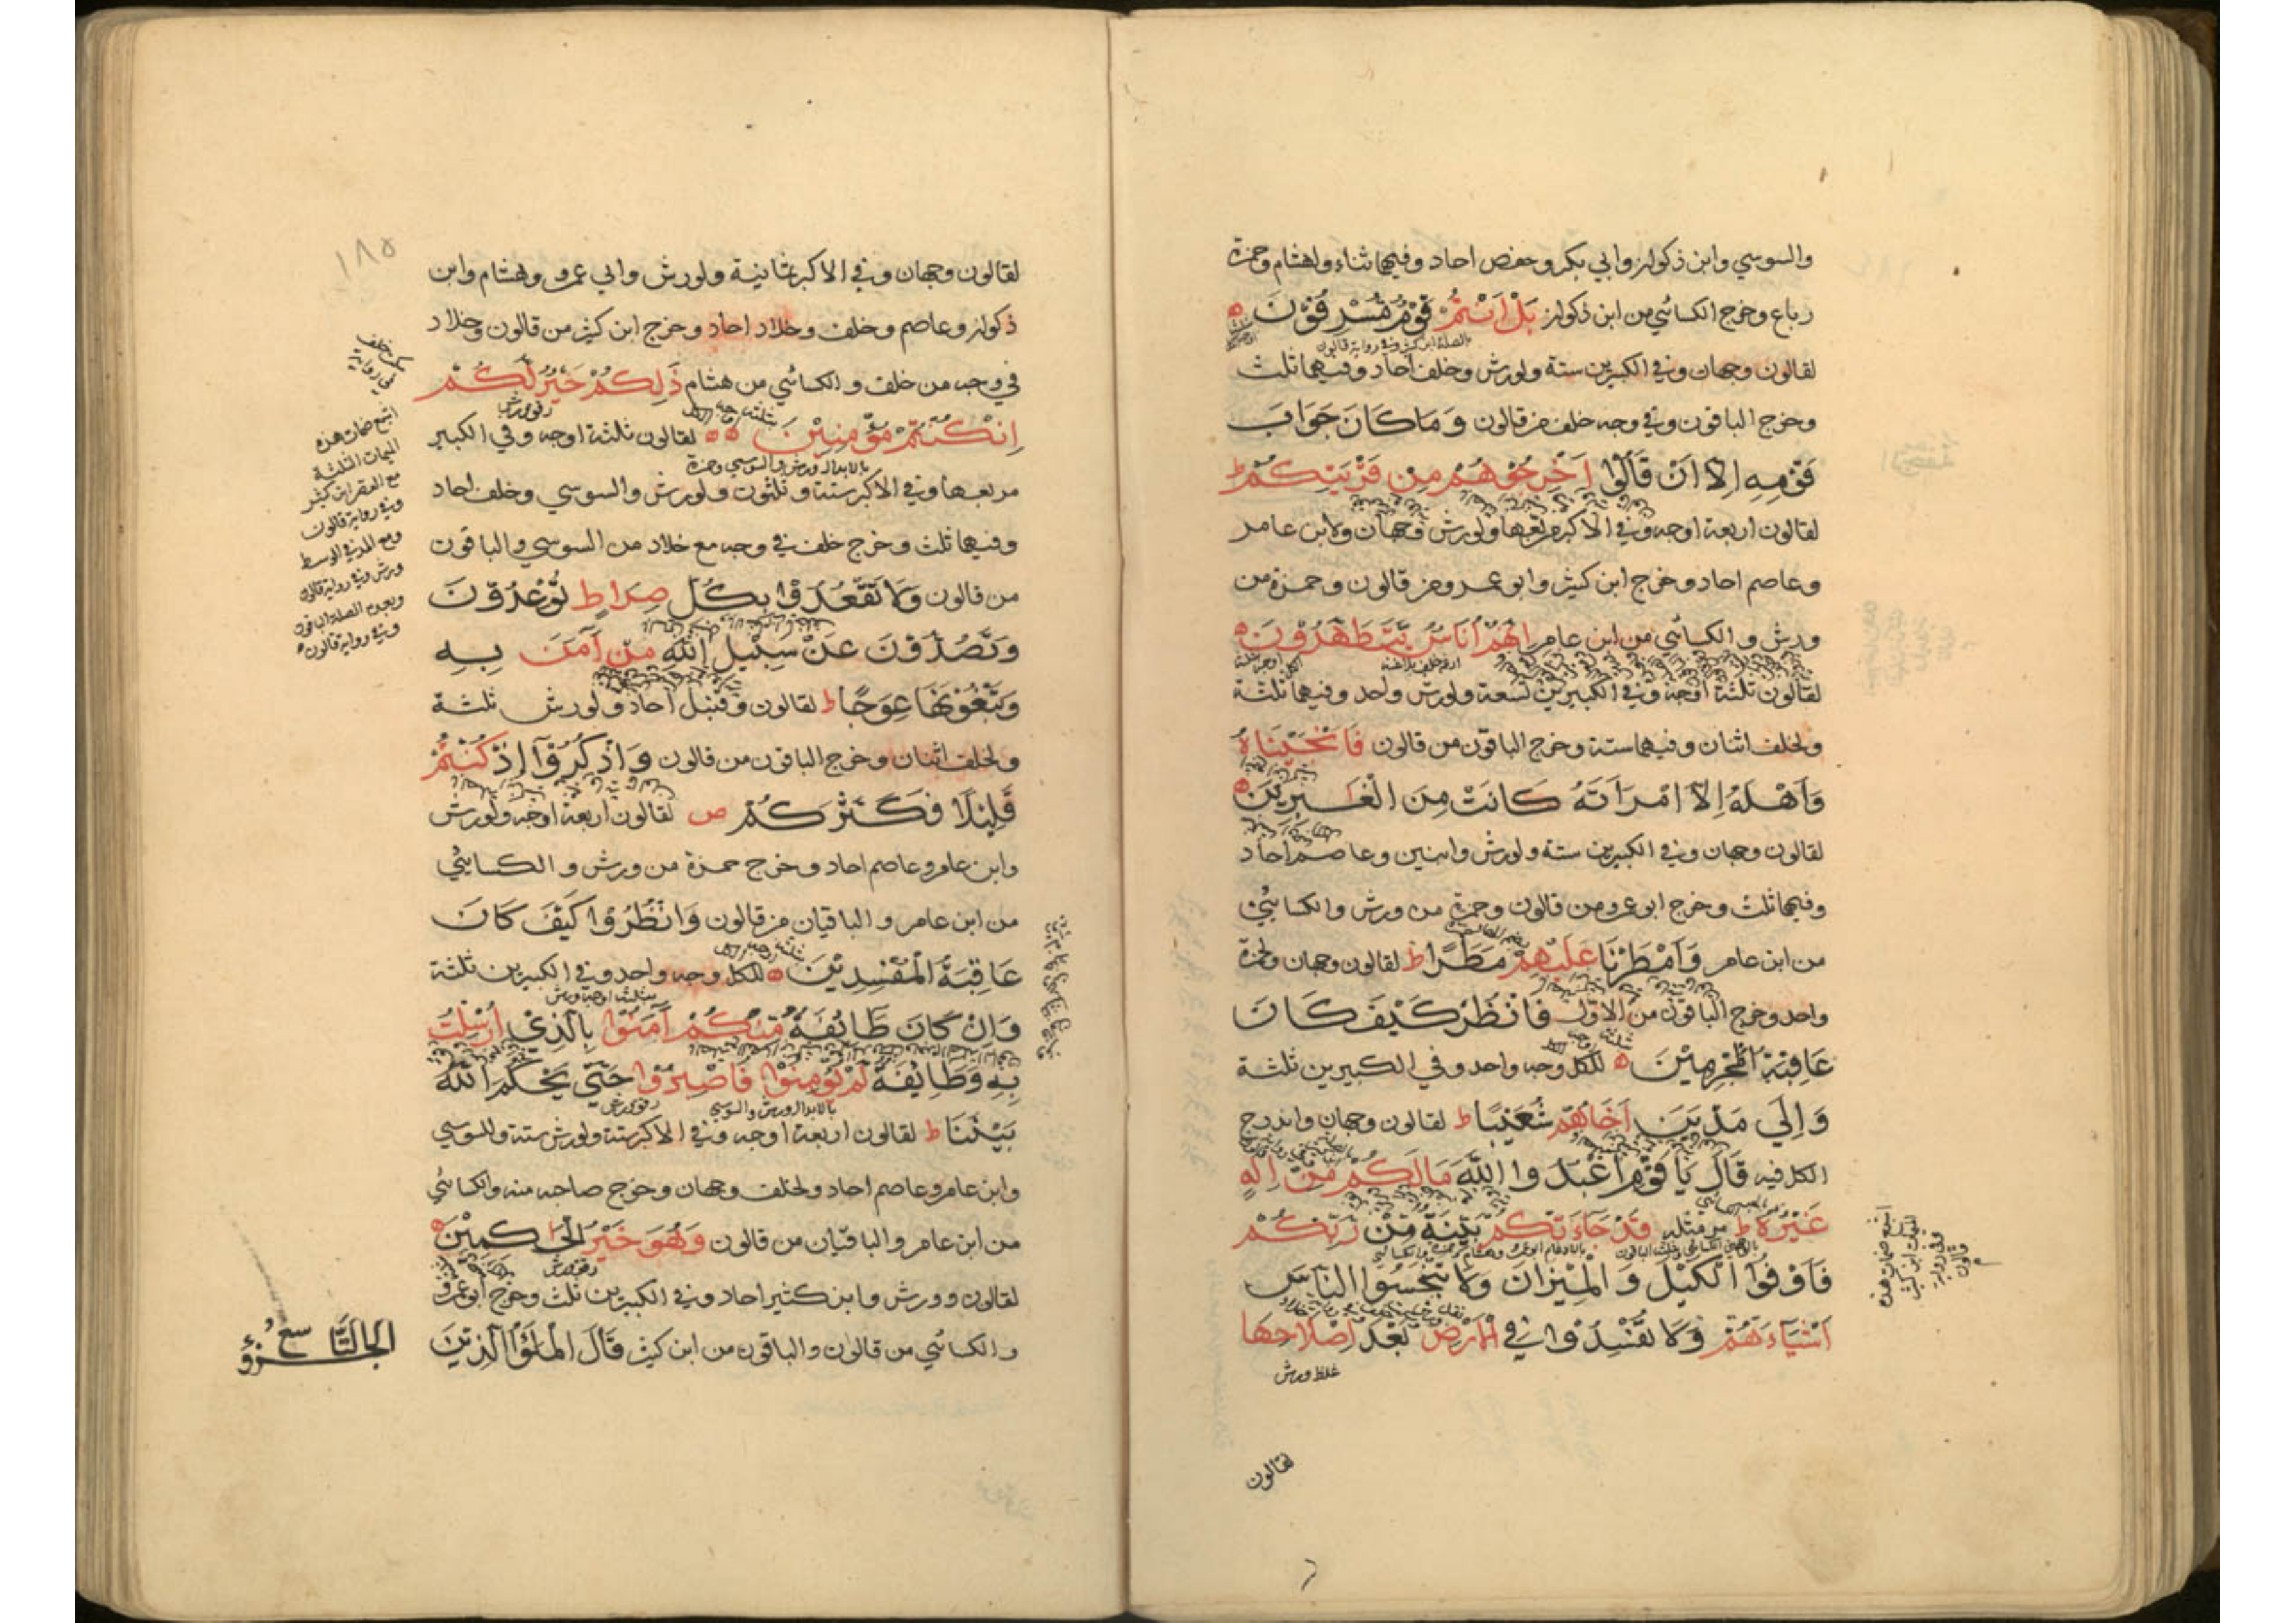 والسوسي وابن ذكوان وابي بكر وحفص احاد وفيهما ثناء ولهشام وحمزة
رباع وخرج الكسائي من ابن ذكوان بَلْ اَنْتُمْ قَوْمٌ مُسْرِفُوْنَ
لقالون وجهان وفي الكبيرين ستة ولورش وخلف احاد وفيهما ثلث
وخرج الباقون وفي وجه خلف من قالون وَمَا كَانَ جَوَابَ
قَوْمِهِ اِلَّا اَنْ قَالُوْا اَخْرِجُوْهُمْ مِنْ قَرْيَتِكُمْ ط
لقالون اربعة اوجه وفي الاكبر مربعها ولورش وجهان ولابن عامر
وعاصم احاد وخرج ابن كثير وابو عمرو من قالون وحمزة من
ورش والكسائي من ابن عامر اِنَّهُمْ اُنَاسٌ يَتَطَهَّرُوْنَ
لقالون ثلثة اوجه وفي الكبيرين تسعة ولورش واحد وفيهما ثلثة
ولخلف اثنان وفيهما ستة وخرج الباقون من قالون فَاَنْجَيْنَاهُ
وَاَهْلَهُ اِلَّا امْرَاَتَهُ كَانَتْ مِنَ الْغَابِرِيْنَ
لقالون وجهان وفي الكبيرين ستة ولورش وابنين وعاصم احاد
وفيهما ثلث وخرج ابو عمرو من قالون وحمزة من ورش والكسائي
من ابن عامر وَاَمْطَرْنَا عَلَيْهِمْ مَطَرًا ط لقالون وجهان ولحمزة
واحد وخرج الباقون من الاول فَانْظُرْ كَيْفَ كَانَ
عَاقِبَةُ الْمُجْرِمِيْنَ للكل وجه واحد وفي الكبيرين ثلثة
وَاِلَى مَدْيَنَ اَخَاهُمْ شُعَيْبًا ط لقالون وجهان واندرج
الكل فيه قَالَ يَا قَوْمِ اعْبُدُوا اللّٰهَ مَا لَكُمْ مِنْ اِلٰهٍ
غَيْرُهُ ط مر مثله قَدْ جَاءَتْكُمْ بَيِّنَةٌ مِنْ رَبِّكُمْ
فَاَوْفُوا الْكَيْلَ وَالْمِيْزَانَ وَلَا تَبْخَسُوا النَّاسَ
اَشْيَاءَهُمْ وَلَا تُفْسِدُوْا فِي الْاَرْضِ بَعْدَ اِصْلَاحِهَا
غلظ ورش
لقالون
اشبع ضمات هذه
الميمات ابن كثير
وفي رواية
قالون
١٨٥
لقالون وجهان وفي الاكبر ثمانية ولورش وابي عمرو وهشام وابن
ذكوان وعاصم وخلف وخلاد احاد وخرج ابن كثير من قالون وخلاد
في وجه من خلف والكسائي من هشام ذٰلِكُمْ خَيْرٌ لَكُمْ
اِنْ كُنْتُمْ مُؤْمِنِيْنَ لقالون ثلثة اوجه وفي الكبير
مربعها وفي الاكبر ستة وثلثون ولورش والسوسي وخلف احاد
وفيهما ثلث وخرج خلف في وجه مع خلاد من السوسي والباقون
من قالون وَلَا تَقْعُدُوْا بِكُلِّ صِرَاطٍ تُوْعِدُوْنَ
وَتَصُدُّوْنَ عَنْ سَبِيْلِ اللّٰهِ مَنْ آمَنَ بِهِ
وَتَبْغُوْنَهَا عِوَجًا ط لقالون وقنبل احاد ولورش ثلثة
ولخلف اثنان وخرج الباقون من قالون وَاذْكُرُوْا اِذْ كُنْتُمْ
قَلِيْلًا فَكَثَّرَكُمْ ص لقالون اربعة اوجه ولورش
وابن عامر وعاصم احاد وخرج حمزة من ورش والكسائي
من ابن عامر والباقيان من قالون وَانْظُرُوْا كَيْفَ كَانَ
عَاقِبَةُ الْمُفْسِدِيْنَ للكل وجه واحد وفي الكبيرين ثلثة
وَاِنْ كَانَ طَائِفَةٌ مِنْكُمْ آمَنُوْا بِالَّذِيْ اُرْسِلْتُ
بِهِ وَطَائِفَةٌ لَمْ يُؤْمِنُوْا فَاصْبِرُوْا حَتّٰى يَحْكُمَ اللّٰهُ
بَيْنَنَا ط لقالون اربعة اوجه وفي الاكبر ستة ولورش ستة وللسوسي
وابن عامر وعاصم احاد ولخلف وجهان وخرج صاحبه منه والكسائي
من ابن عامر والباقيان من قالون وَهُوَ خَيْرُ الْحَاكِمِيْنَ
لقالون وورش وابن كثير احاد وفي الكبيرين ثلث وخرج ابو عمرو
والكسائي من قالون والباقون من ابن كثير قَالَ الْمَلَؤُا الَّذِيْنَ
اشبع ضمات هذه
الميمات الثلثة
مع القصر ابن كثير
وفي رواية قالون
ومع المد في الوسط
ورش وفي رواية قالون
وبعدم الصلة الباقون
وفي رواية قالون
الجزؤ التاسع